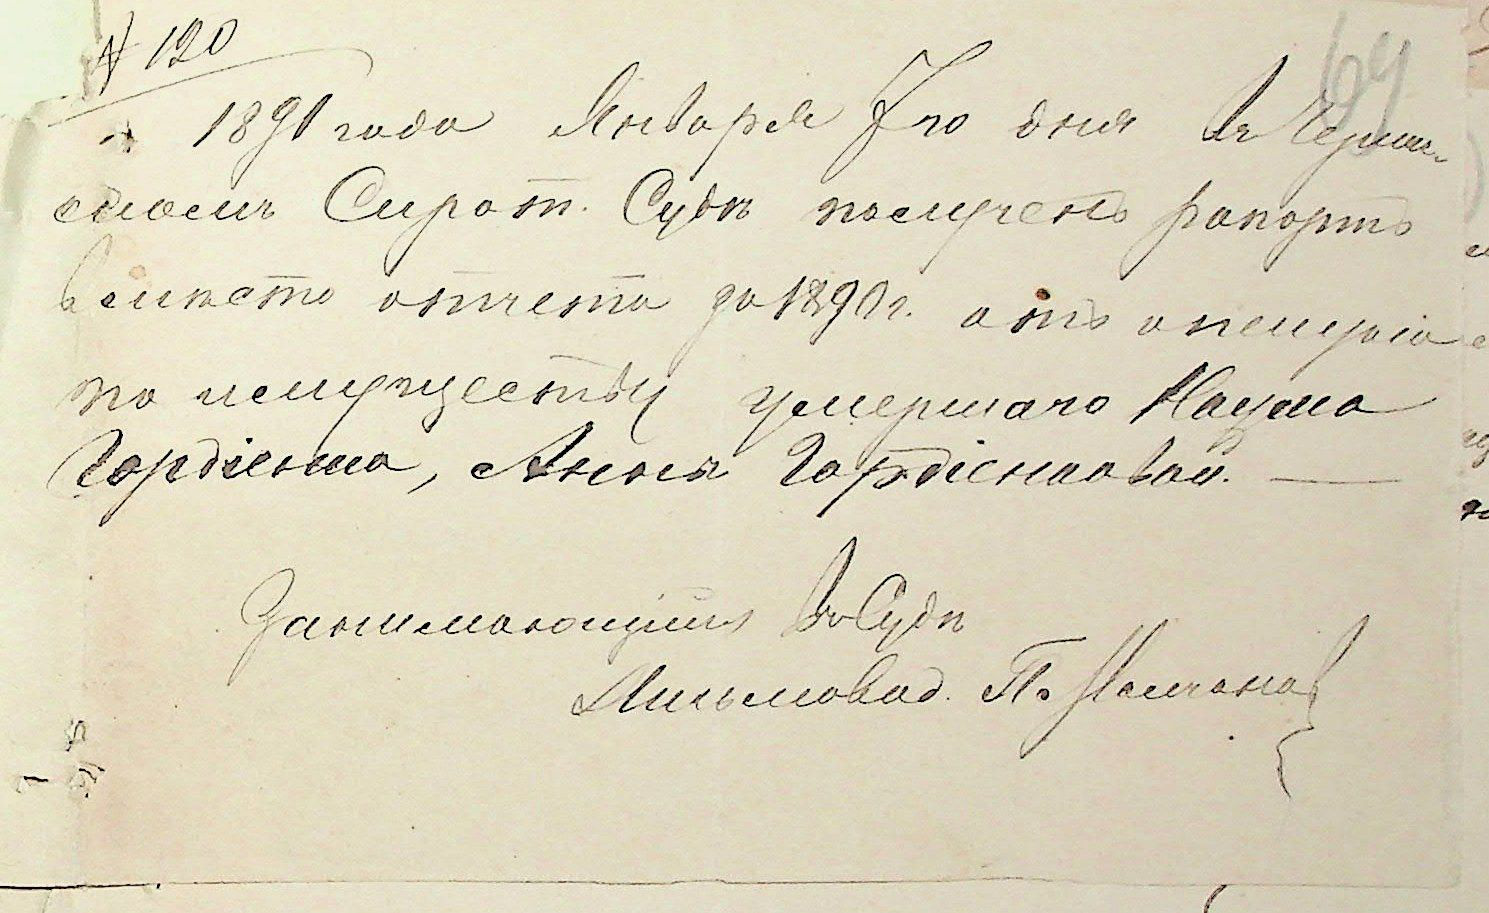 N 120
69
1891 года Января 7го дня въ Черни-
скомъ Сирот. Судѣ полученъ рапортъ
вмѣсто отчета за 1890 г. отъ опекуши
по имуществу умершаго Наума
Гордіенка, Анны Гордіенковой. —
Занимающійся въ Судѣ
Письмовод. П. Молчанов